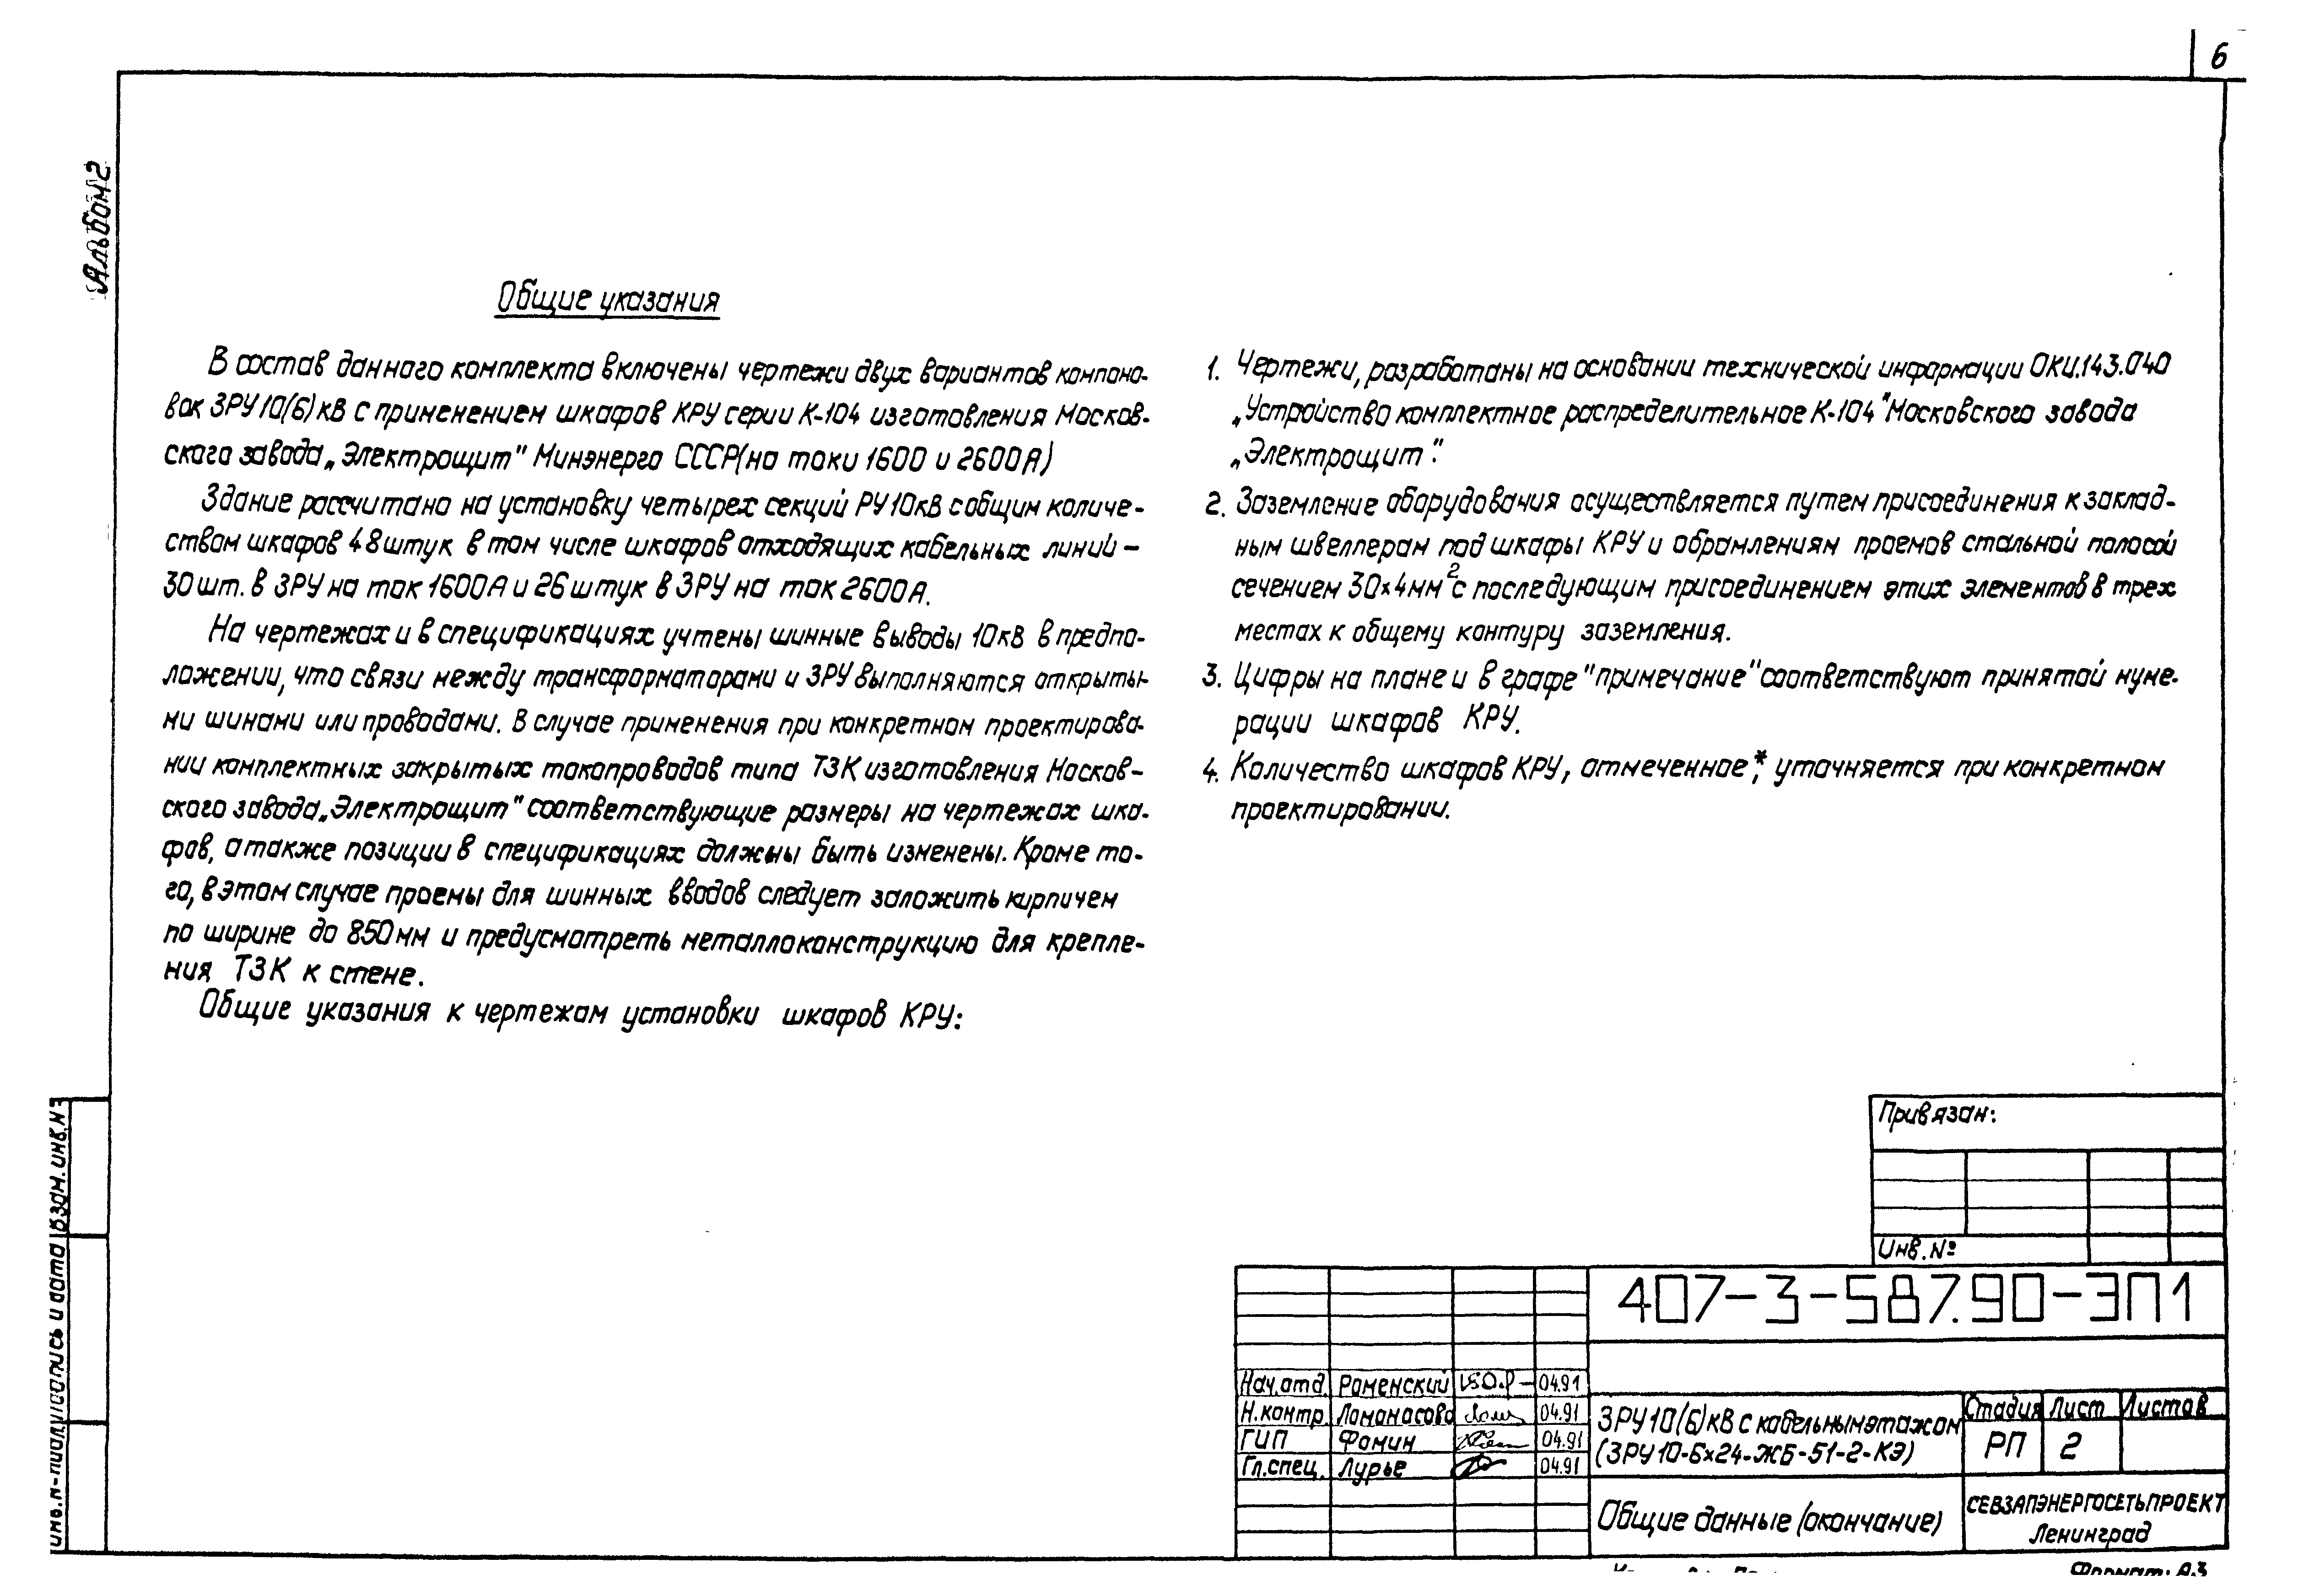 6
Альбом 2
Общие указания
В состав данного комплекта включены чертежи двух вариантов компоно-
вок ЗРУ 10(6) кВ с применением шкафов КРУ серии К-104 изготовления Москов-
ского завода „Электрощит" Минэнерго СССР (на токи 1600 и 2600А)
Здание рассчитано на установку четырех секций РУ 10кВ с общим количе-
ством шкафов 48 штук в том числе шкафов отходящих кабельных линий -
30 шт. в ЗРУ на ток 1600А и 26 штук в ЗРУ на ток 2600А.
На чертежах и в спецификациях учтены шинные выводы 10кВ в предпо-
ложении, что связи между трансформаторами и ЗРУ выполняются открыты-
ми шинами или проводами. В случае применения при конкретном проектирова-
нии комплектных закрытых токопроводов типа ТЗК изготовления Москов-
ского завода „Электрощит" соответствующие размеры на чертежах шка-
фов, а также позиции в спецификациях должны быть изменены. Кроме то-
го, в этом случае проемы для шинных вводов следует заложить кирпичем
по ширине до 850мм и предусмотреть металлоконструкцию для крепле-
ния ТЗК к стене.
Общие указания к чертежам установки шкафов КРУ:
1. Чертежи, разработаны на основании технической информации ОКИ.143.040
„Устройство комплектное распределительное К-104" Московского завода
„Электрощит".
2. Заземление оборудования осуществляется путем присоединения к заклад-
ным швеллерам под шкафы КРУ и обрамлениям проемов стальной полосой
сечением 30×4мм² с последующим присоединением этих элементов в трех
местах к общему контуру заземления.
3. Цифры на плане и в графе "примечание" соответствуют принятой нуме-
рации шкафов КРУ.
4. Количество шкафов КРУ, отмеченное *, уточняется при конкретном
проектировании.
Привязан:
Инв. №
407-3-587.90-ЭП1
Нач.отд. Роменский 04.91
Н.контр. Ломоносова 04.91
ГИП Фомин 04.91
Гл.спец. Лурье 04.91
ЗРУ 10(6) кВ с кабельным этажом
(ЗРУ 10-6×24-ЖБ-51-2-КЭ)
Стадия Лист Листов
РП 2
Общие данные (окончание)
СЕВЗАПЭНЕРГОСЕТЬПРОЕКТ
Ленинград
Формат: А3
Взам. инв. №
Подпись и дата
Инв. № подл.